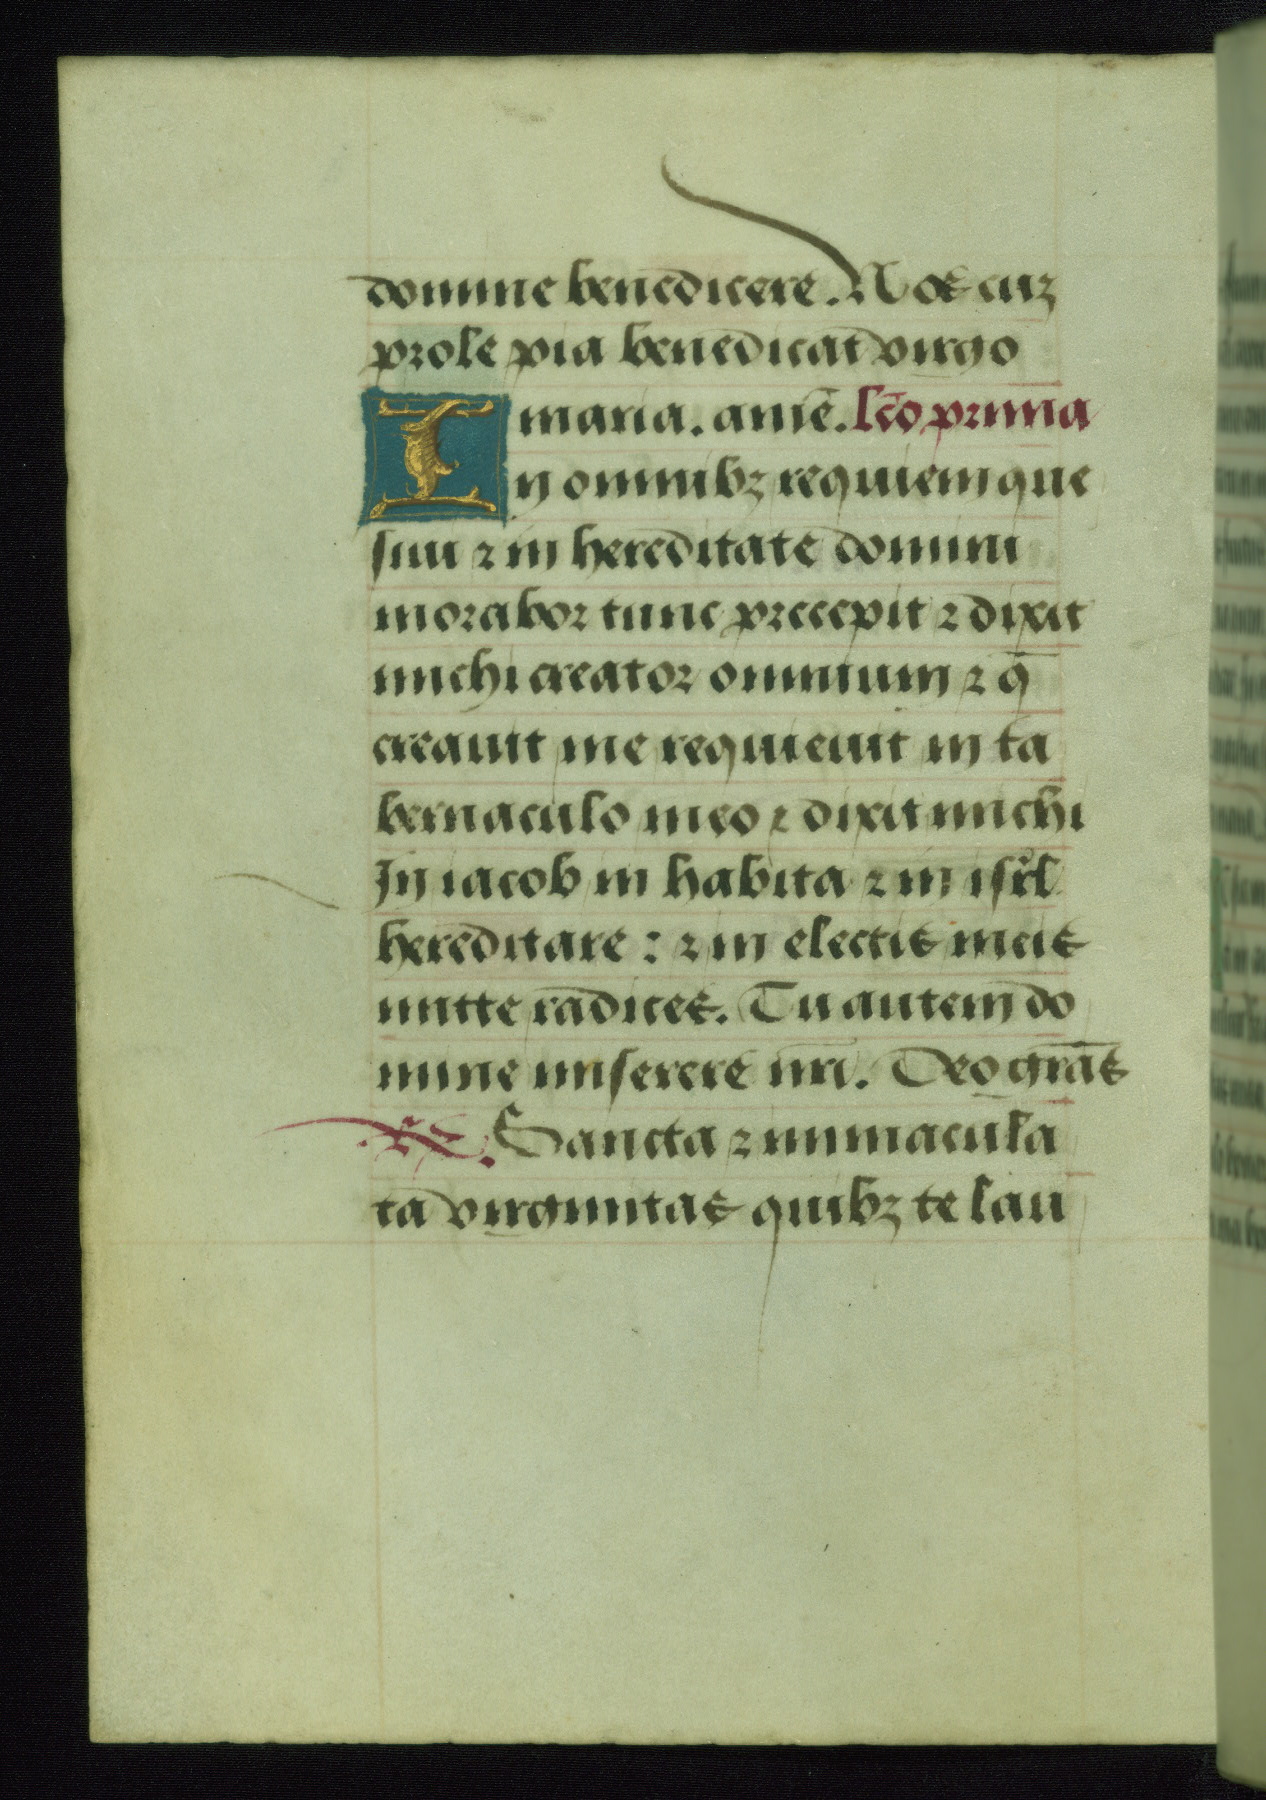 domine benedicere. Nos cuz
prole pia benedicat virgo
maria. amē. lc̄o prima
In omnibz requiem que
siui ⁊ in hereditate domini
morabor tunc precepit ⁊ dixit
michi creator omnium ⁊ q̄
creauit me requieuit in ta
bernaculo meo ⁊ dixit michi
In iacob in habita ⁊ in isrl̄
hereditare: ⁊ in electis meis
mitte radices. Tu autem do
mine miserere nr̄i. Deo grās
Sancta ⁊ immacula
ta virginitas quibz te lau